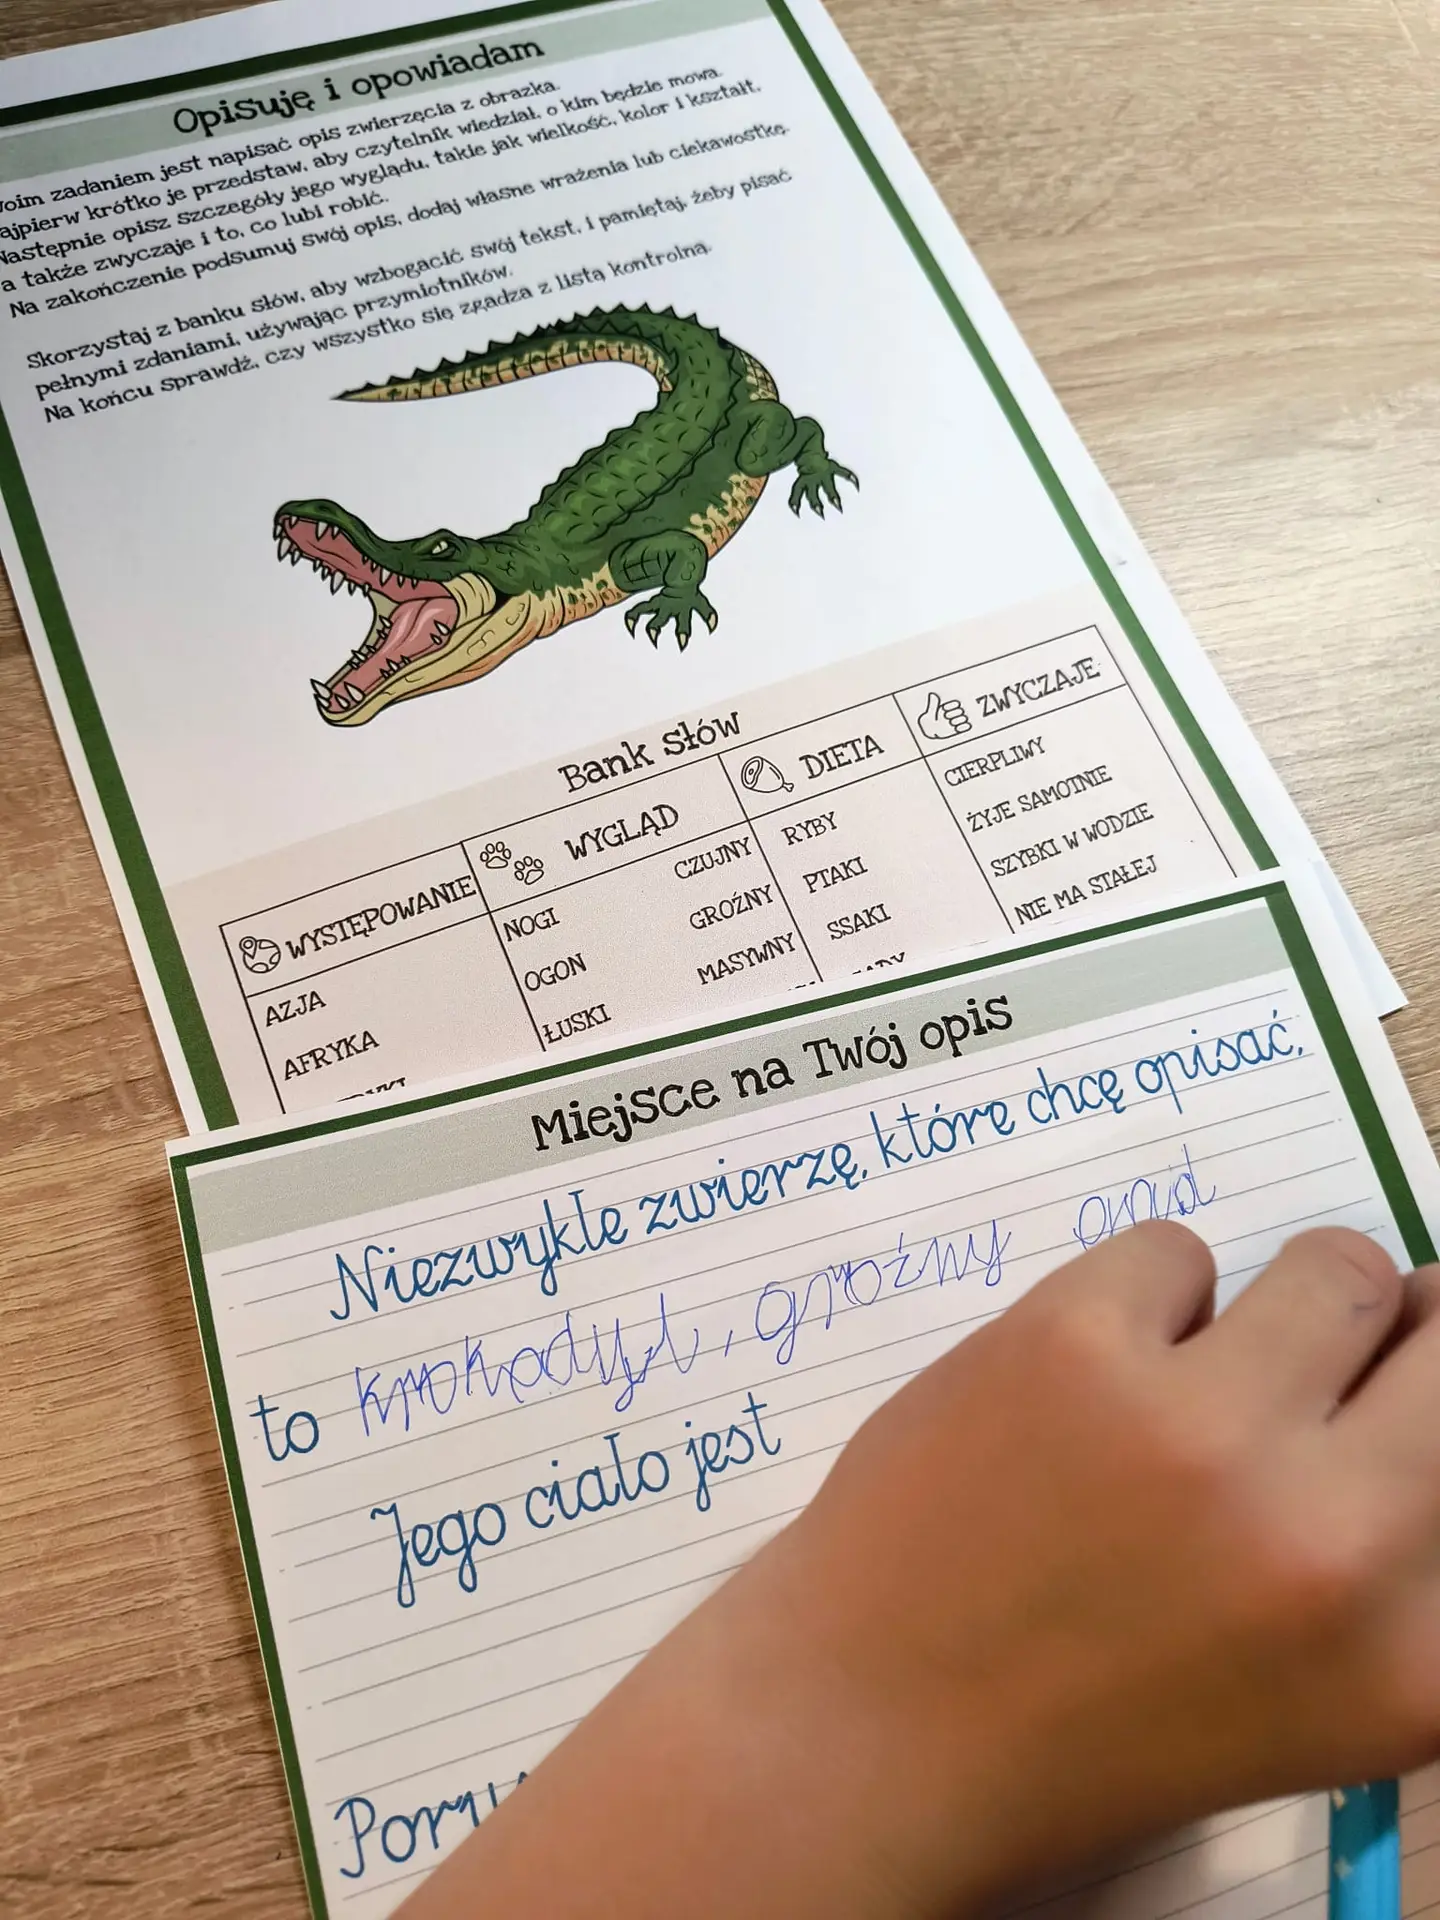 Opisuję i opowiadam
woim zadaniem jest napisać opis zwierzęcia z obrazka.
ajpierw krótko je przedstaw, aby czytelnik wiedział, o kim będzie mowa.
Następnie opisz szczegóły jego wyglądu, takie jak wielkość, kolor i kształt,
a także zwyczaje i to, co lubi robić.
Na zakończenie podsumuj swój opis, dodaj własne wrażenia lub ciekawostkę.
Skorzystaj z banku słów, aby wzbogacić swój tekst, i pamiętaj, żeby pisać
pełnymi zdaniami, używając przymiotników.
Na końcu sprawdź, czy wszystko się zgadza z listą kontrolną.
Bank słów
WYSTĘPOWANIE
AZJA
AFRYKA
WYGLĄD
NOGI
OGON
ŁUSKI
CZUJNY
GROŹNY
MASYWNY
DIETA
RYBY
PTAKI
SSAKI
ZWYCZAJE
CIERPLIWY
ŻYJE SAMOTNIE
SZYBKI W WODZIE
NIE MA STAŁEJ
Miejsce na Twój opis
Niezwykłe zwierzę, które chcę opisać,
to krokodyl, groźny
Jego ciało jest